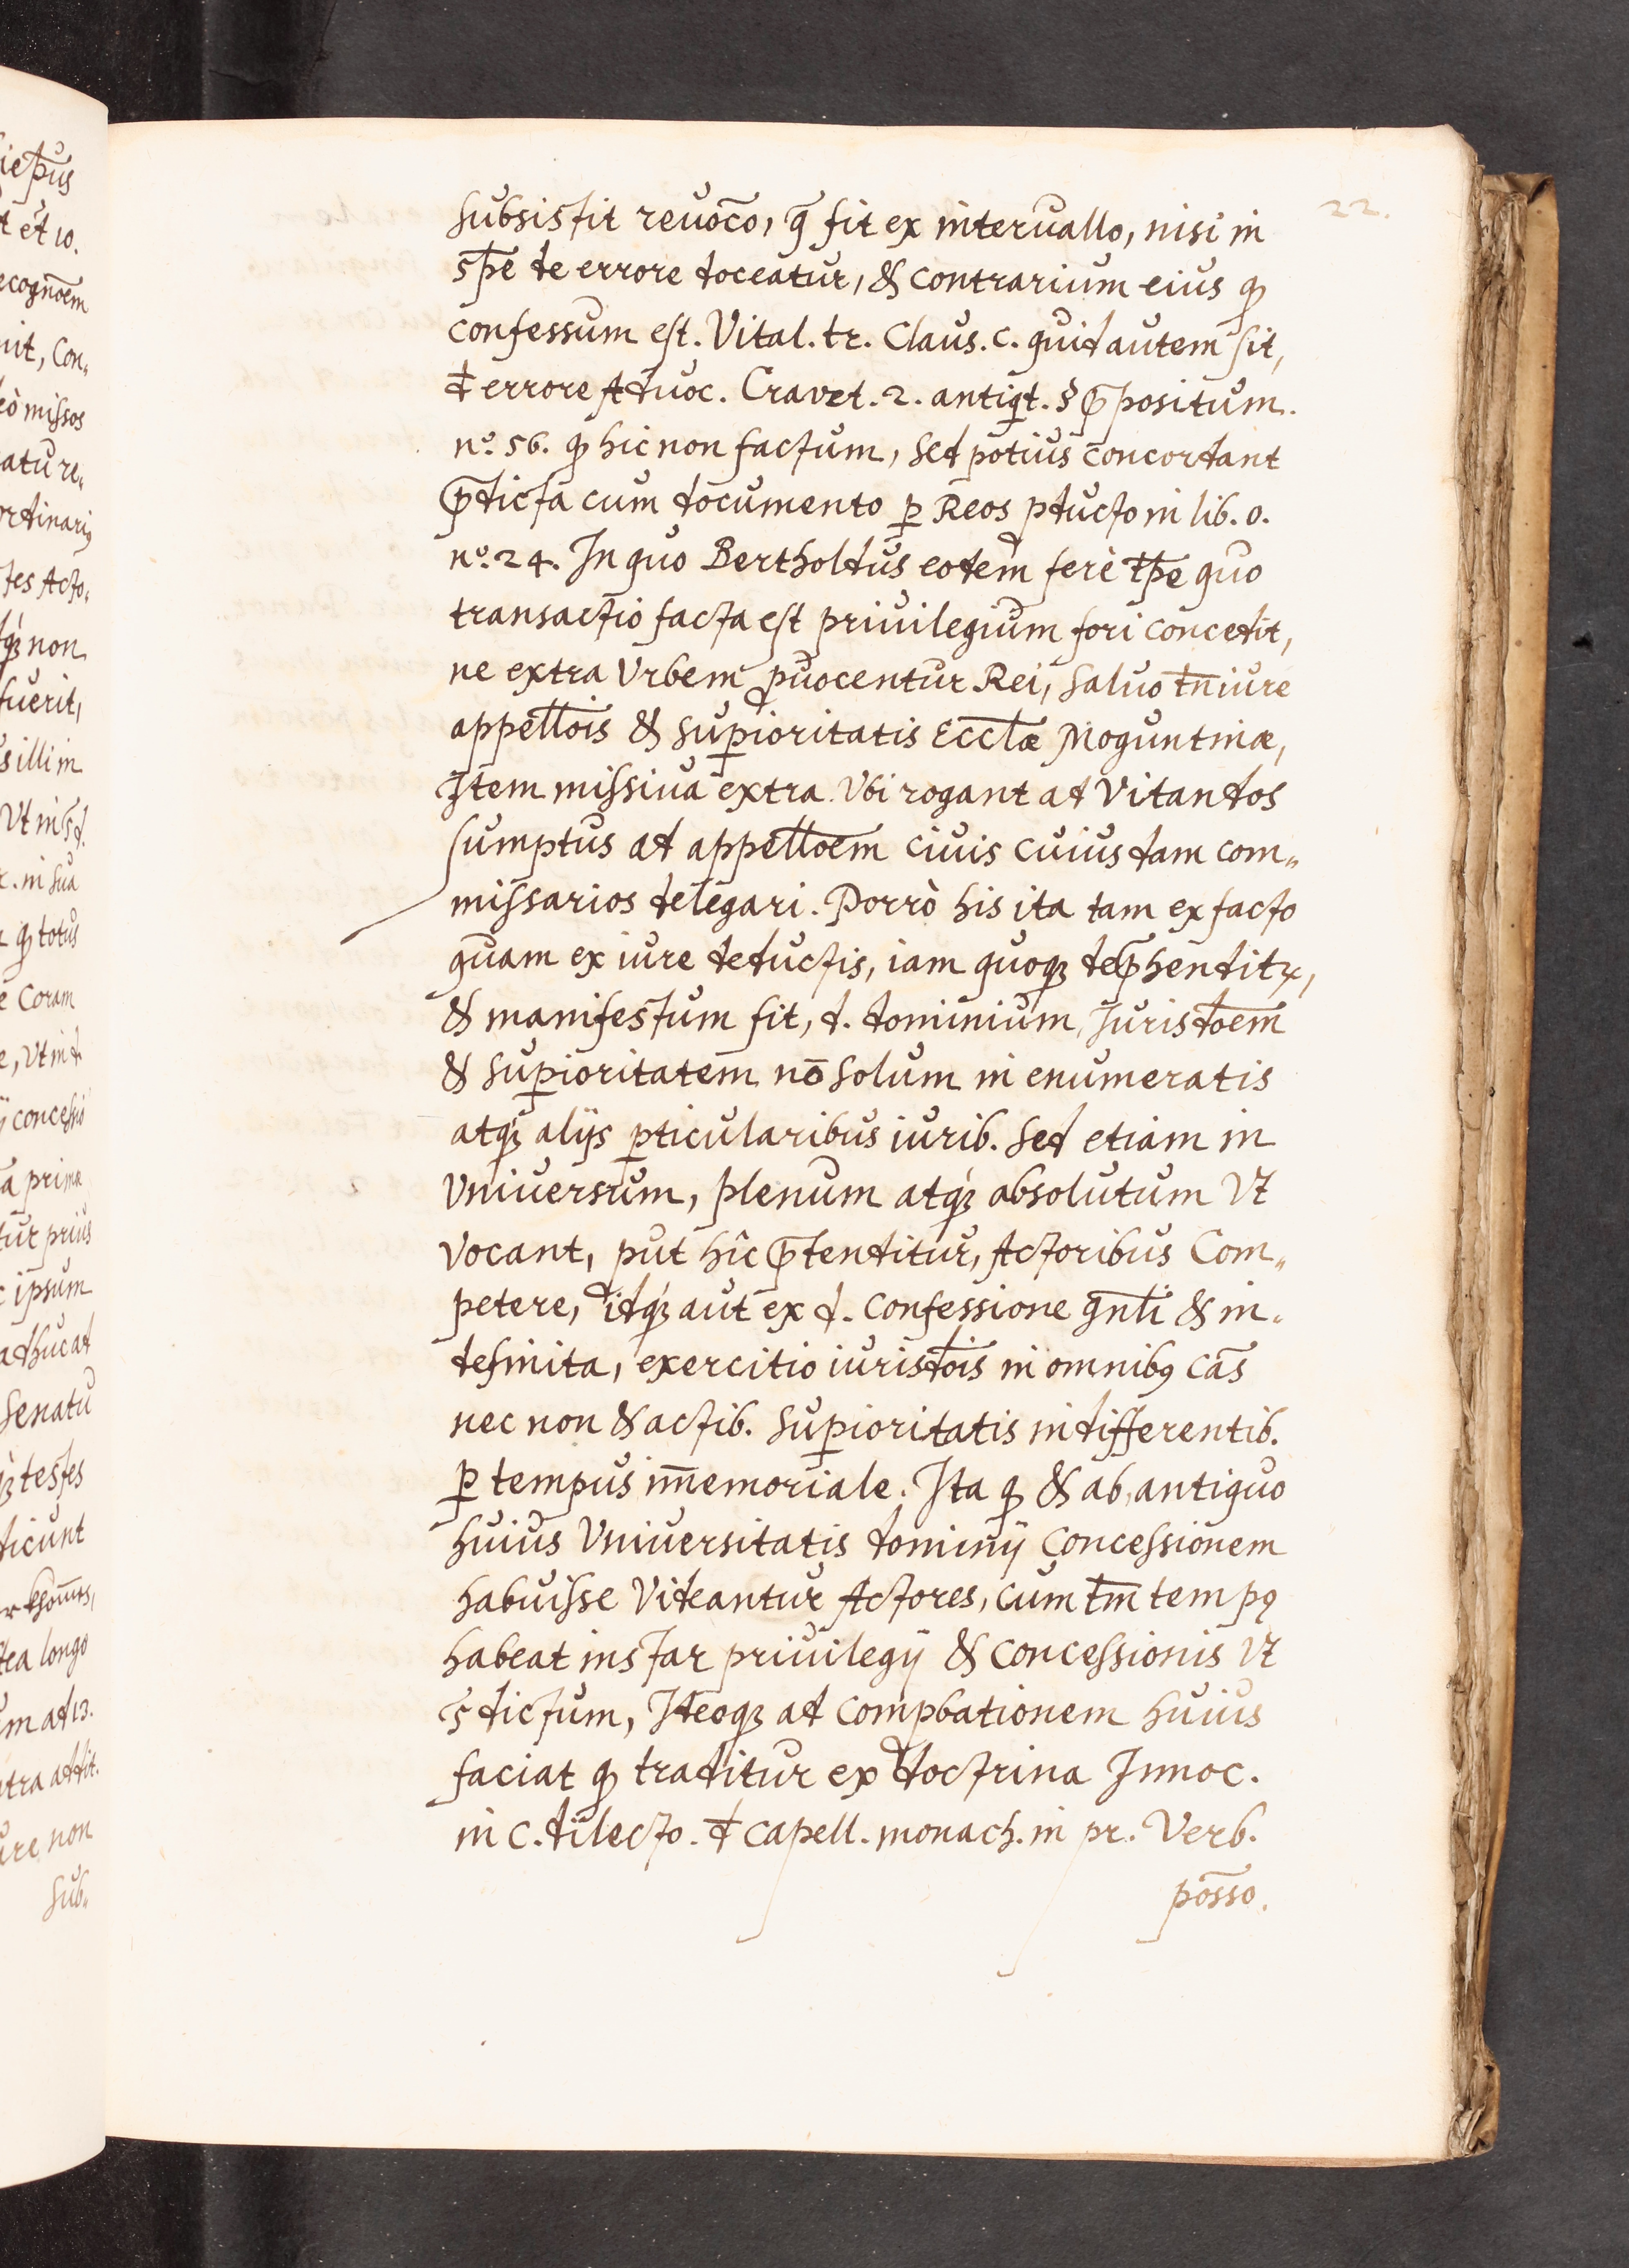 22.
subsistit reuoc̄o, q̄ fit ex interuallo, nisi in
sp̄e de errore doceatur, & contrarium eius qꝫ
confessum est. Vital. tr. Claus. c. quid autem sit,
đ errore Aduoc. Cravet. 2. antiqt. § p̄positum.
nº. 56. qꝫ hic non factum, sed potius concordant
p̄dicta cum documento ꝑ Reos ꝓducto in lib. o.
nº. 24. In quo Bertholdus eodem ferè tp̄e quo
transactio facta est priuilegium fori concedit,
ne extra Vrbem ꝓuocentur Rei, saluo tn̄ iure
appełłois & suꝑioritatis Eccłæ Moguntinæ,
Item missiua extra. Vbi rogant ad Vitandos
sumptus ad appełłoem ciuis cuiusdam com„
missarios delegari. Porrò his ita tam ex facto
quam ex iure deductis, iam quoqꝫ dep̄henditꝛ,
& manifestum fit, d. dominium, Jurisdo͞em
& suꝑioritatem nō solum in enumeratis
atqꝫ alijs ꝑticularibus iurib. sed etiam in
Vniuersum, plenum atqꝫ absolutum Vt
vocant, ꝓut hîc p̄tenditur, Actoribus Com„
petere, idqꝫ aut ex d. Confessione gn̄łi & in„
definita, exercitio iurisdo͞is in omnibꝰ cās
nec non & actib. suꝑioritatis indifferentib.
ꝑ tempus im̄emoriale. Ita qꝫ & ab antiquo
huius Vniuersitatis dominij Concessionem
habuisse Videantur Actores, cum tm̄ tempꝰ
habeat instar priuilegij & Concessionis Vt
s̄ dictum, Ideoqꝫ ad comꝓbationem huius
faciat qꝫ traditur ex doctrina Innoc.
in c. dilecto. đ capell. monach. in pr. Verb.
pōsso.